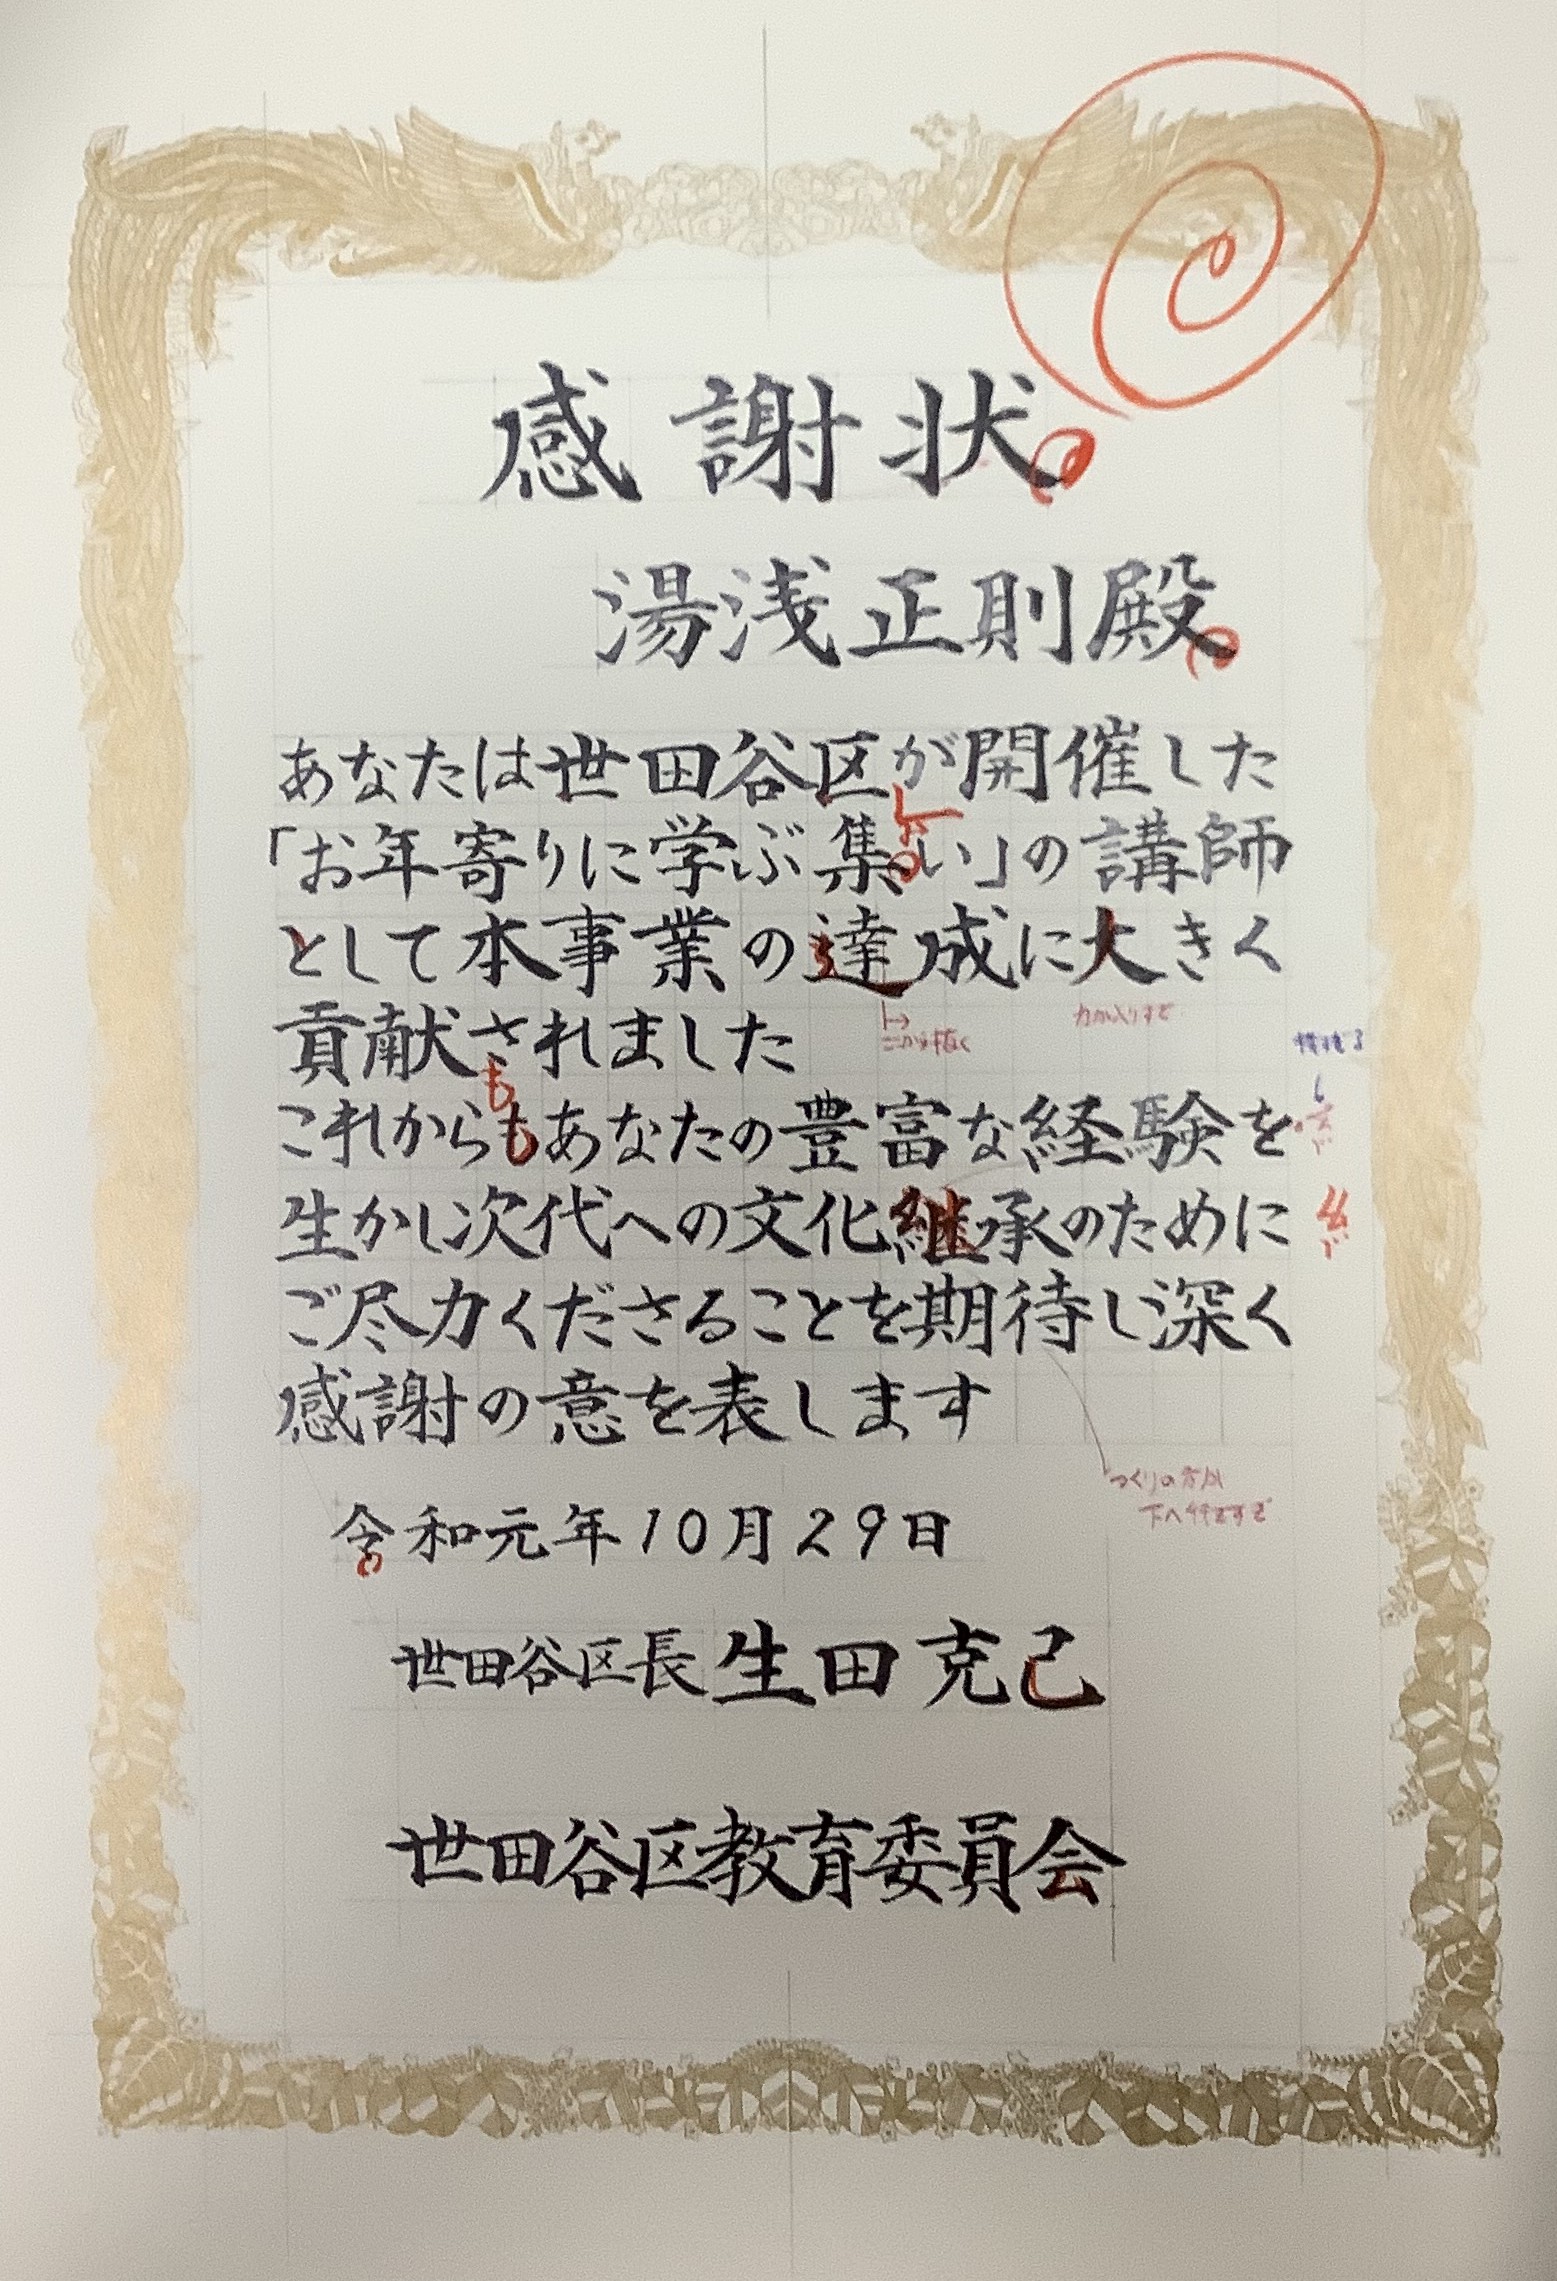 感謝状
湯浅正則殿
あなたは世田谷区が開催した
「お年寄りに学ぶ集い」の講師
として本事業の達成に大きく
貢献されました
これからもあなたの豊富な経験を
生かし次代への文化継承のために
ご尽力くださることを期待し深く
感謝の意を表します
令和元年10月29日
世田谷区長 生田克己
世田谷区教育委員会
も
糸
力が入りすぎ
つくりの方が